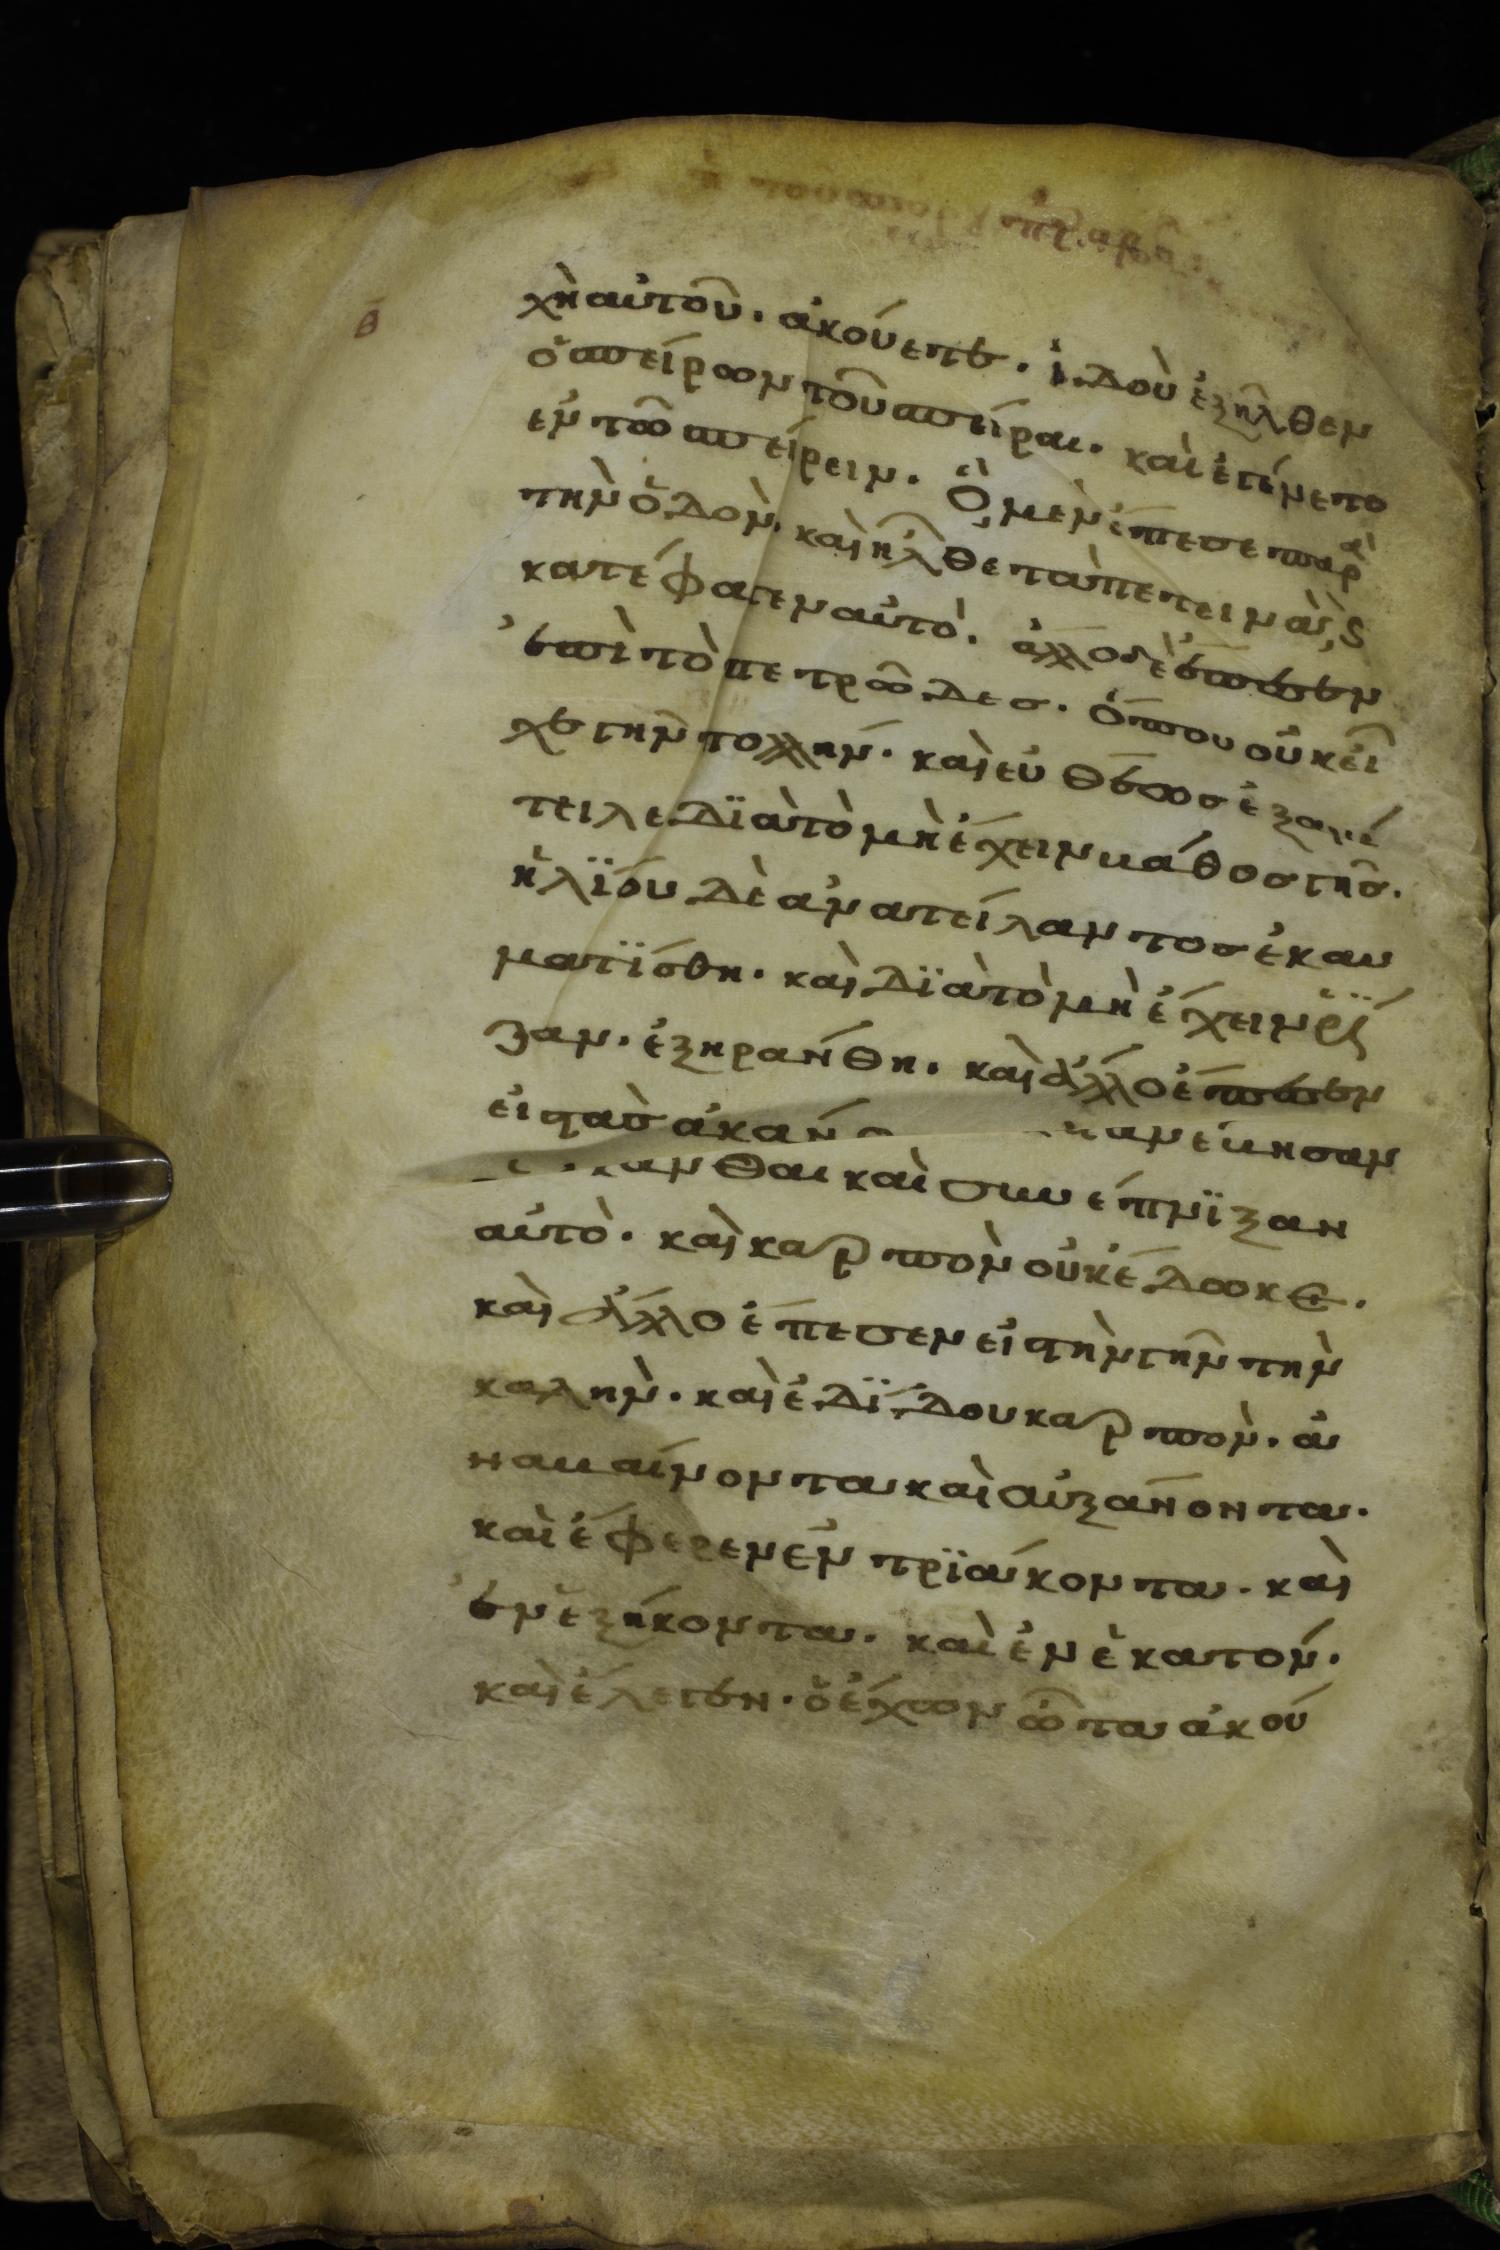 χῆ αὐτοῦ. ἀκούετε. ἰδοὺ ἐξῆλθεν
ὁ σπείρων τοῦ σπείραι. καὶ ἐγένετο
ἐν τῶ σπείρειν. ὃ μὲν ἔπεσε παρὰ
τὴν ὁδὸν. καὶ ἦλθε τὰ πετεινὰ, ϛ
κατέφαγεν αὐτὸ. ἄλλο δὲ ἔπεσεν
ἐπὶ τὸ πετρῶδες. ὅπου οὐκ εἶ
χε γῆν πολλήν. καὶ εὐθέως ἐξανέ
τειλε διὰ τὸ μὴ ἔχειν βάθος γῆς.
ἡλίου δὲ ἀνατείλαντος ἐκαυ
ματίσθη. καὶ διὰ τὸ μὴ ἔχειν ῥί
ζαν. ἐξηράνθη. καὶ ἄλλο ἔπεσεν
εἰς τὰς ἀκάν ἀνέβησαν
ἄκανθαι καὶ συνέπνιξαν
αὐτὸ. καὶ καρπὸν οὐκ ἔδωκε.
καὶ ἄλλο ἔπεσεν εἰς τὴν γῆν τὴν
καλὴν. καὶ ἐδίδου καρπὸν. ἀ
ναβαίνοντα καὶ αὐξάνοντα.
καὶ ἔφερεν ἐν τριάκοντα. καὶ
ἐν ἑξήκοντα. καὶ ἐν ἑκατόν.
καὶ ἔλεγεν. ὁ ἔχων ὦτα ἀκού